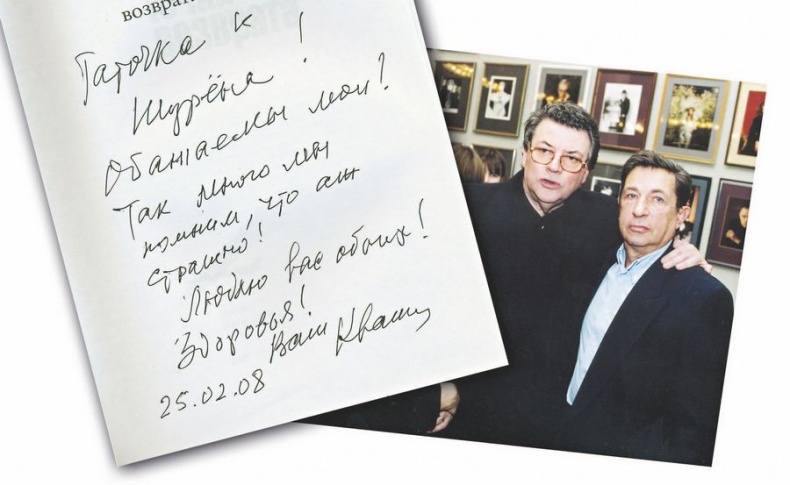 возврати
Таточка и
Шурёна!
Обожаемы мои!
Так много мы
помним, что аж
страшно!
Люблю вас обоих!
Здоровья!
Ваш Кваша
25.02.08